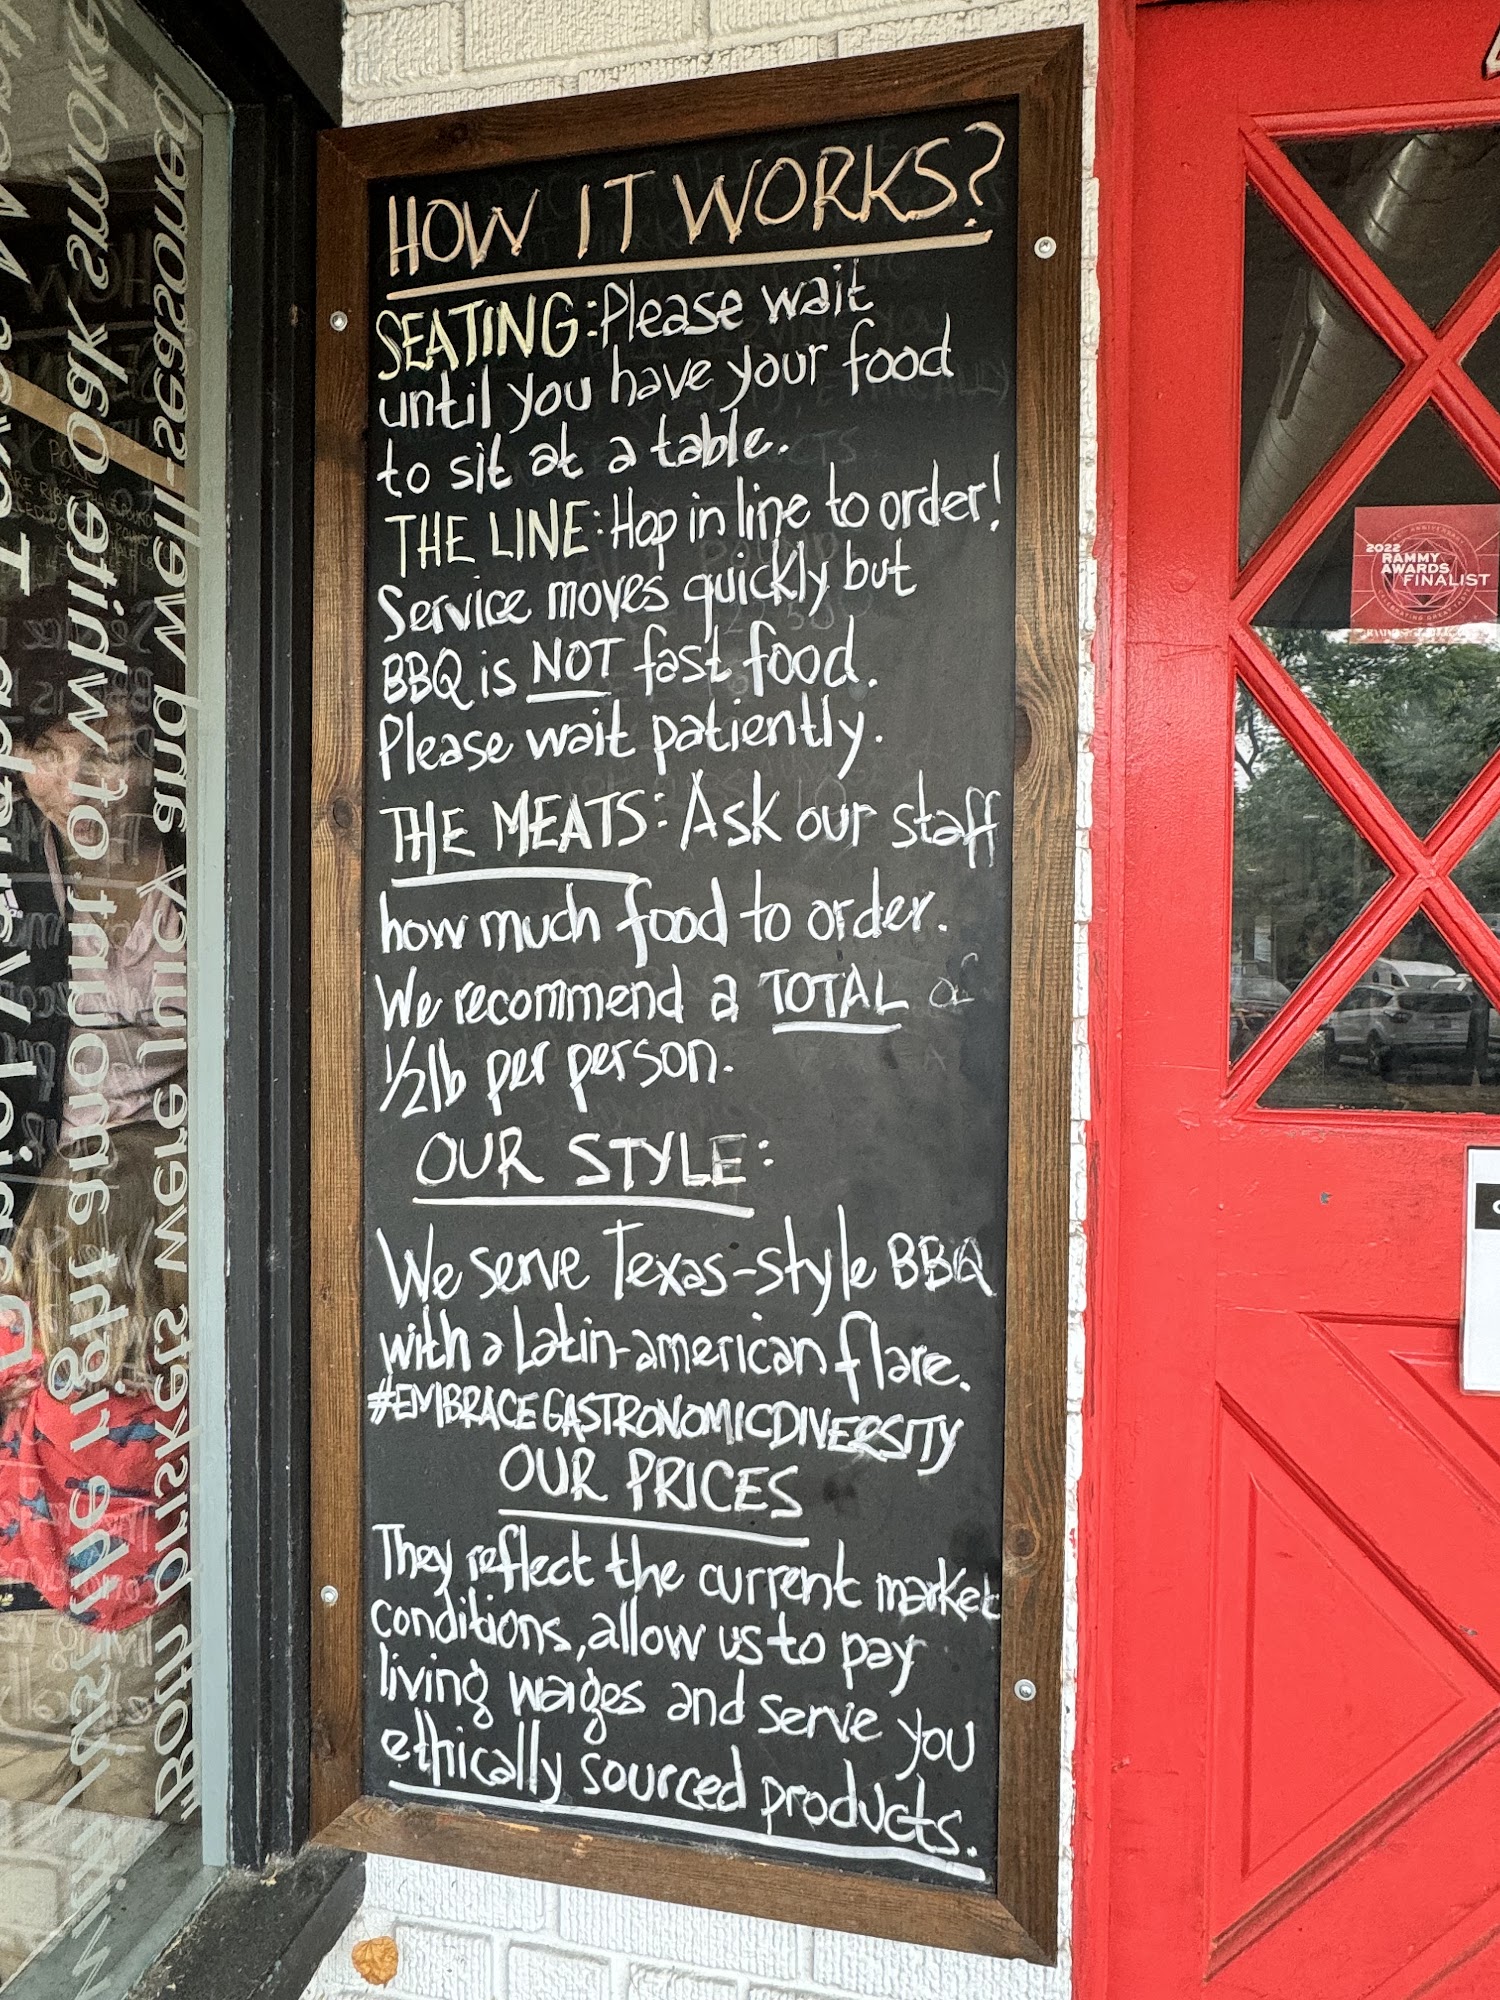 HOW IT WORKS?
SEATING: Please wait
until you have your food
to sit at a table.
THE LINE: Hop in line to order!
Service moves quickly but
BBQ is NOT fast food.
Please wait patiently.
THE MEATS: Ask our staff
how much food to order.
We recommend a TOTAL of
1/2lb per person.
OUR STYLE:
We serve Texas-style BBQ
with a Latin-american flare.
#EMBRACEGASTRONOMICDIVERSITY
OUR PRICES
They reflect the current market
conditions, allow us to pay
living wages and serve you
ethically sourced products.
2022
RAMMY
AWARDS
FINALIST
white oak smoke
the right amount of
Both briskets were juicy and well-seasoned